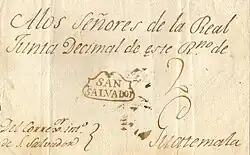 Alos Señores de la Real
Junta Decimal de este Rno de
2
SAN
SALVADOR
Guatemala
Del Corre
de S. Salvador